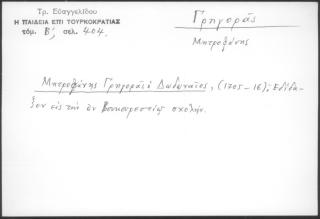 Τρ. Εὐαγγελίδου
Η ΠΑΙΔΕΙΑ ΕΠΙ ΤΟΥΡΚΟΚΡΑΤΙΑΣ
τόμ. Β', σελ. 404.
Γρηγορᾶς
Μητροφάνης
Μητροφάνης Γρηγορᾶς ὁ Δωδωναῖος, (1705-16); Ἐδίδα-
ξεν εἰς τὴν ἐν Βουκουρεστίῳ σχολήν.